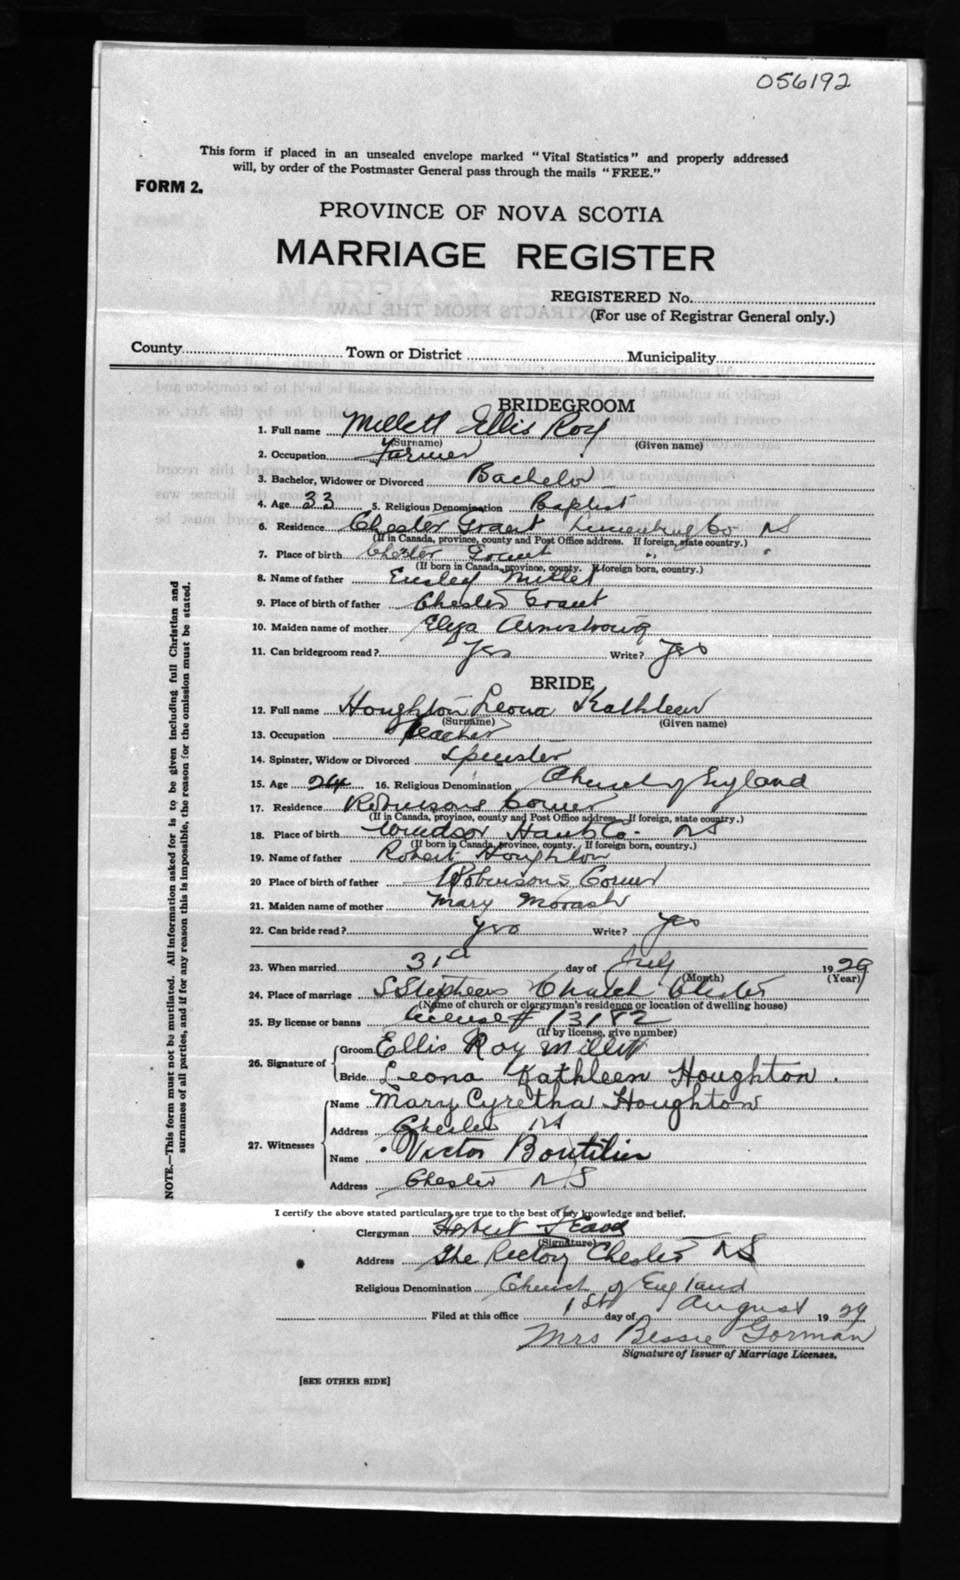 056192
This form if placed in an unsealed envelope marked "Vital Statistics" and properly addressed
will, by order of the Postmaster General pass through the mails "FREE."
FORM 2.
PROVINCE OF NOVA SCOTIA
MARRIAGE REGISTER
REGISTERED No.
(For use of Registrar General only.)
County Town or District Municipality
BRIDEGROOM
1. Full name Millett Ellis Roy
(Surname) (Given name)
2. Occupation Farmer
3. Bachelor, Widower or Divorced Bachelor
4. Age 33 5. Religious Denomination Baptist
6. Residence Chester Grant Lunenburg Co NS
(If in Canada, province, county and Post Office address. If foreign, state country.)
7. Place of birth Chester Grant " "
(If born in Canada, province, county. If foreign born, country.)
8. Name of father Millet
9. Place of birth of father Chester Grant
10. Maiden name of mother Eliza Armstrong
11. Can bridegroom read? Yes Write? Yes
BRIDE
12. Full name Houghton Leona Kathleen
(Surname) (Given name)
13. Occupation Teacher
14. Spinster, Widow or Divorced Spinster
15. Age 24 16. Religious Denomination Church of England
17. Residence Robinsons Corner
(If in Canada, province, county and Post Office address. If foreign, state country.)
18. Place of birth Windsor Hants Co. NS
(If born in Canada, province, county. If foreign born, country.)
19. Name of father Robert Houghton
20 Place of birth of father Robinsons Corner
21. Maiden name of mother Mary Morash
22. Can bride read? Yes Write? Yes
23. When married 31st day of July 1929
(Month) (Year)
24. Place of marriage S Stephens Church Chester
(Name of church or clergyman's residence or location of dwelling house)
25. By license or banns License # 13182
(If by license, give number)
26. Signature of Groom Ellis Roy Millett
Bride Leona Kathleen Houghton.
27. Witnesses Name Mary Cyretha Houghton
Address Chester NS
Name Victor Boutilier
Address Chester NS
I certify the above stated particulars are true to the best of my knowledge and belief.
Clergyman Herbert
(Signature)
Address The Rectory Chester NS
Religious Denomination Church of England
Filed at this office 1st day of August 1929
Mrs Bessie Gorman
Signature of Issuer of Marriage Licenses.
[SEE OTHER SIDE]
NOTE.—This form must not be mutilated. All information asked for is to be given including full Christian and
surnames of all parties, and if for any reason this is impossible, the reason for the omission must be stated.